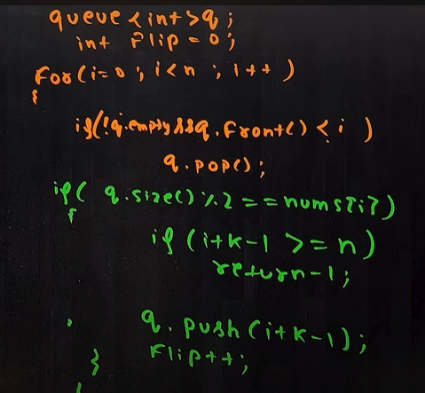 queue<int>q;
int Flip = 0;
for(i=0; i<n; i++)
{
if(!q.empty && q.front() < i)
q.pop();
if( q.size()%2 == nums[i])
{
if (i+k-1 >= n)
return -1;
q. push(i+k-1);
Flip++;
}